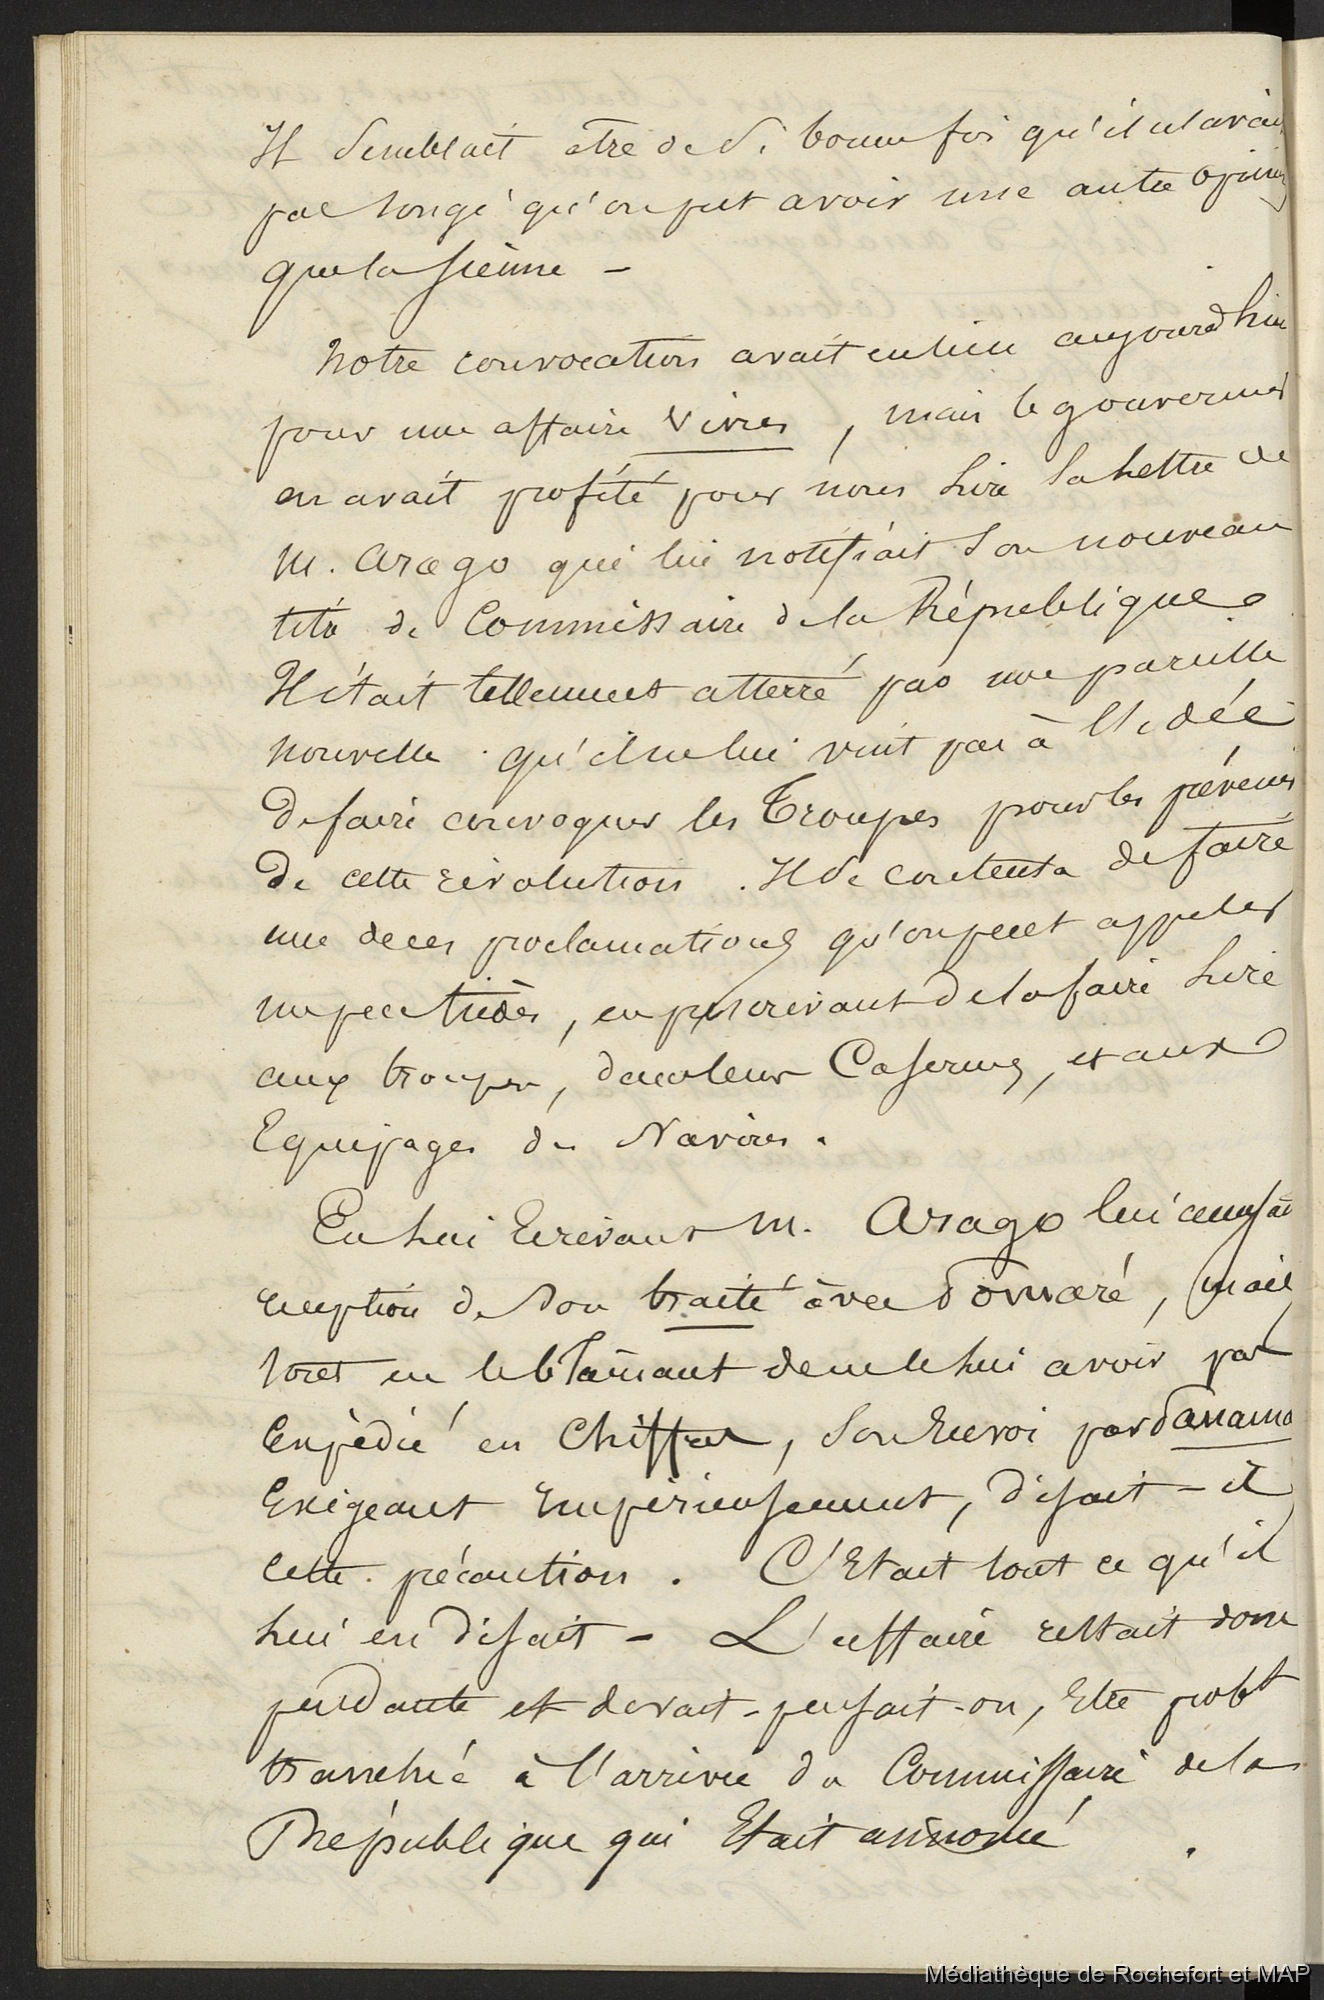 Il semblait être de si bonne foi qu'il n'avait
pas songé qu'on put avoir une autre opinion
que la sienne –
Notre convocation avait eu lieu aujourd'hui
pour une affaire vivres, mais le gouverneur
en avait profité pour nous lire la lettre de
M. Arago qui lui notifiait son nouveau
titre de Commissaire de la République.
Il était tellement atterré par une pareille
nouvelle qu'il ne lui vint pas à l'idée
de faire convoquer les Troupes pour les prévenir
de cette révolution. Il se contenta de faire
une de ces proclamations qu'on peut appeler
un peu tièdes, en prescrivant de la faire lire
aux troupes, dans leurs Casernes, et aux
Equipages des Navires.
En lui Ecrivant M. Arago lui accusait
reception de son traité avec Pomaré, mais
tout en le blâmant de ne le lui avoir pas
Expédié en Chiffres, son Envoi par Panama
Exigeant impérieusement, disait-il
cette précaution. C'Etait tout ce qu'il
lui en disait – L'affaire restait donc
pendante et devait, pensait-on, Etre probt
tranchée à l'arrivée du Commissaire de la
République qui Etait annoncé.
Médiathèque de Rochefort et MAP